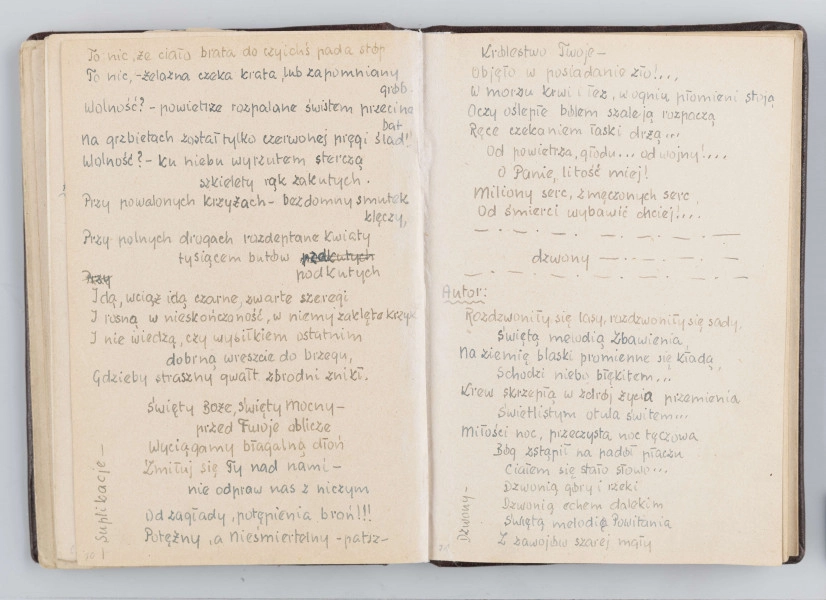 To nic, że ciało brata do czyichś pada stóp
To nic, - żelazna czeka krata, lub zapomniany
grób.
Wolność? - powietrze rozpalane świstem przecina
bat
Na grzbietach został tylko czerwonej pręgi ślad!
Wolność? - ku niebu wyrzutem sterczą
szkielety rąk zakutych.
Przy powalonych krzyżach - bezdomny smutek
klęczy,
Przy polnych drogach rozdeptane kwiaty
tysiącem butów podkutych
Przy podkutych
Idą, wciąż idą czarne, zwarte szeregi
I rosną w nieskończoność, w niemy zaklęte krzyk
I nie wiedzą, czy wysiłkiem ostatnim
dobrną wreszcie do brzegu,
Gdzieby straszny gwałt zbrodni znikł.
Święty Boże, Święty Mocny -
przed Twoje oblicze
Wyciągamy błagalną dłoń
Zmiłuj się Ty nad nami -
nie odpraw nas z niczym
Od zagłady, potępienia broń!!!
Potężny, a Nieśmiertelny - patrz -
- Suplikacje -
Królestwo Twoje -
Objęło w posiadanie zło!...
W morzu krwi i łez, w ogniu, płomieni stoją
Oczy oślepłe bólem szaleją rozpaczą
Ręce czekaniem łaski drżą...
Od powietrza, głodu... od wojny!....
O Panie, litość miej!
Miliony serc, zmęczonych serc,
Od śmierci wybawić chciej!...
dzwony
Autor:
Rozdzwoniły się lasy, rozdzwoniły się sady,
Świętą melodią Zbawienia,
Na ziemię blaski promienne się kładą,
Schodzi niebo błękitem...
Krew skrzepłą w zdrój życia przemienia
Świetlistym otula świtem...
Miłości noc, przeczysta noc tęczowa
Bóg zstąpił na padół płaczu
Ciałem się stało słowo...
Dzwonią góry i rzeki
Dzwonią echem dalekim
Świętą melodię Powitania
Z zawojów szarej mgły
Dzwony -